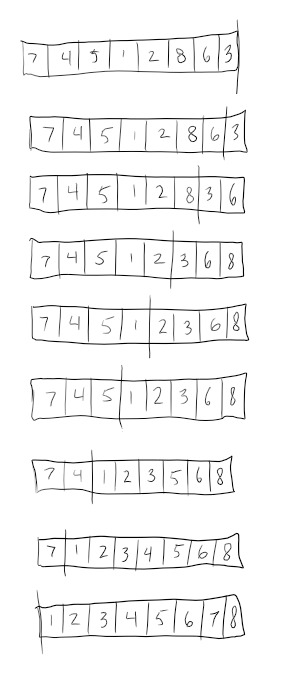 7 4 5 1 2 8 6 3
7 4 5 1 2 8 6 3
7 4 5 1 2 8 3 6
7 4 5 1 2 3 6 8
7 4 5 1 2 3 6 8
7 4 5 1 2 3 6 8
7 4 1 2 3 5 6 8
7 1 2 3 4 5 6 8
1 2 3 4 5 6 7 8